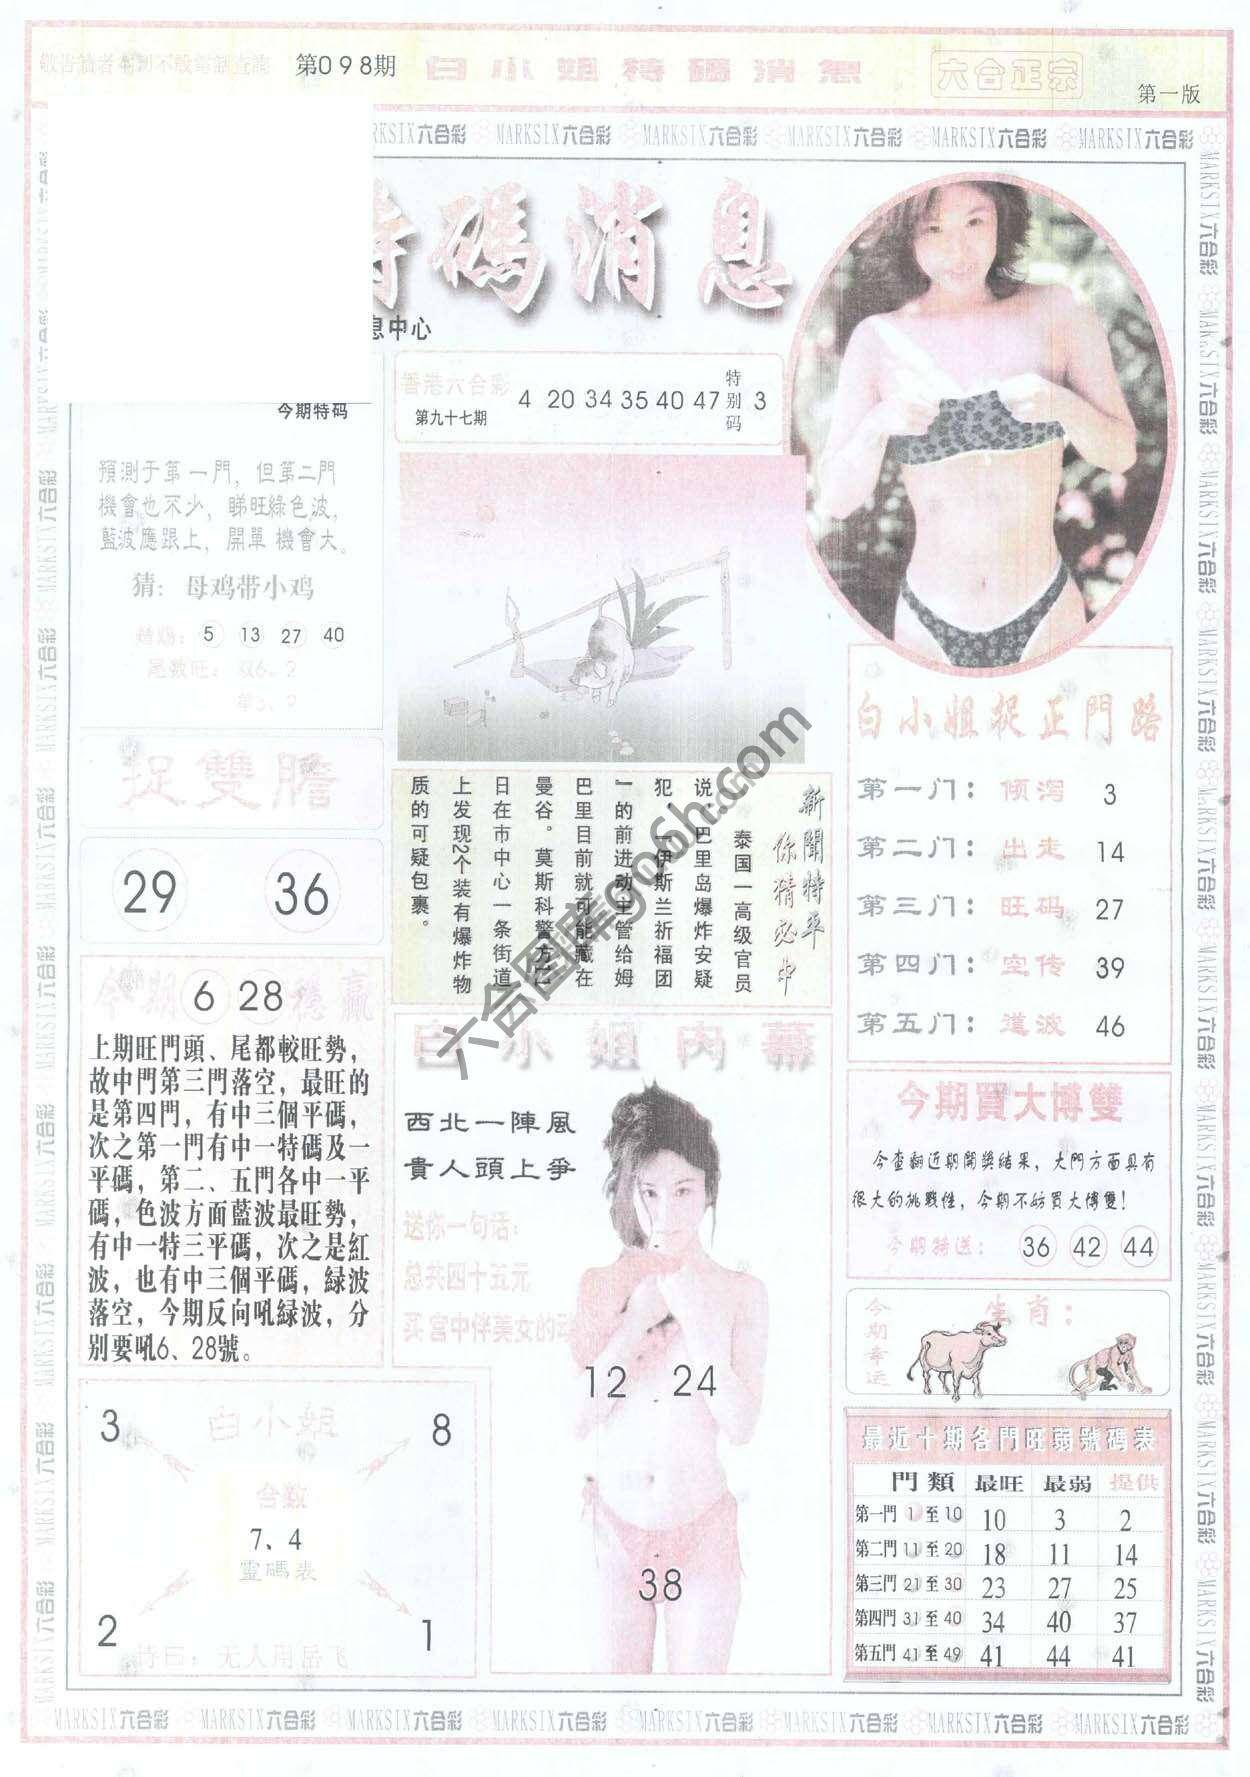 敬告讀者
第098期
白小姐特碼消息
六合正宗
第一版
MARKSIX六合彩
特碼消息
息中心
今期特码
預測于第一門，但第二門
機會也不少，睇旺綠色波，
藍波應跟上，開單機會大。
猜：母鸡带小鸡
5 13 27 40
尾数旺：双6、?
单3、?
捉雙膽
29 36
今期 6 28 穩贏
上期旺門頭、尾都較旺勢，
故中門第三門落空，最旺的
是第四門，有中三個平碼，
次之第一門有中一特碼及一
平碼，第二、五門各中一平
碼，色波方面藍波最旺勢，
有中一特三平碼，次之是紅
波，也有中三個平碼，緑波
落空，今期反向吼緑波，分
别要吼6、28號。
白小姐
3 8
合数
7、4
靈碼表
2 1
特曰：无人用岳飞
香港六合彩
第九十七期
4 20 34 35 40 47 特别码 3
新聞特平
你猜必中
泰国一高级官员
说：巴里岛爆炸安疑
犯、一伊斯兰祈福团
的前进动主管给姆
巴里目前就可能藏在
曼谷。莫斯科警方11
日在市中心一条街道
上发现2个装有爆炸物
质的可疑包裹。
白小姐内幕
西北一陣風
貴人頭上爭
送你一句话：
总共四十五元
买宫中伴美女的
12 24
38
白小姐捉正門路
第一门：倾泻 3
第二门：出走 14
第三门：旺码 27
第四门：空传 39
第五门：道波 46
今期買大博雙
今查翻近期開獎結果，大門方面具有
很大的挑戰性，今期不妨買大博雙！
今期特送：36 42 44
今期幸运
生肖：
最近十期各門旺弱號碼表
門類 最旺 最弱 提供
第一門 1至10 10 3 2
第二門 11至20 18 11 14
第三門 21至30 23 27 25
第四門 31至40 34 40 37
第五門 41至49 41 44 41
六合图库go6h.com